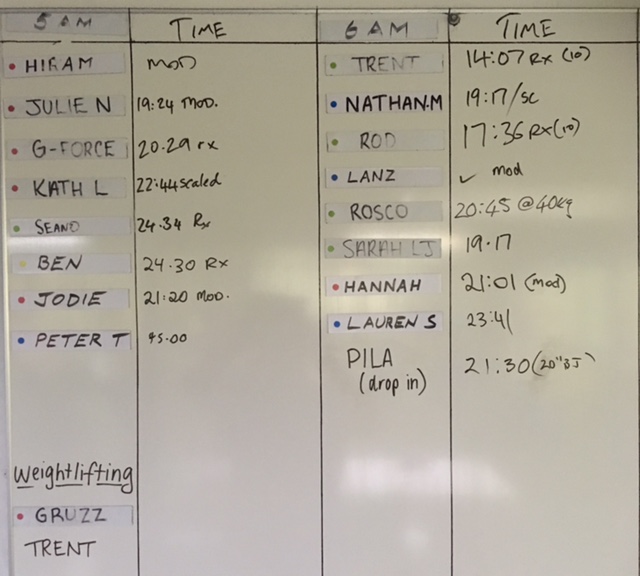 5 AM TIME
HIRAM MOD
JULIE N 19:24 MOD.
G-FORCE 20.29 rx
KATH L 22:44 scaled
SEANO 24.34 Rx
BEN 24.30 RX
JODIE 21:20 MOD.
PETER T 45.00
Weightlifting
GRUZZ
TRENT
6 AM TIME
TRENT 14:07 Rx (10)
NATHAN.M 19:17/SC
ROD 17:36 RX(10)
LANZ ✓ mod
ROSCO 20:45 @40kg
SARAH LJ 19.17
HANNAH 21:01 (mod)
LAUREN S 23:41
PILA 21:30 (20"BJ)
(drop in)